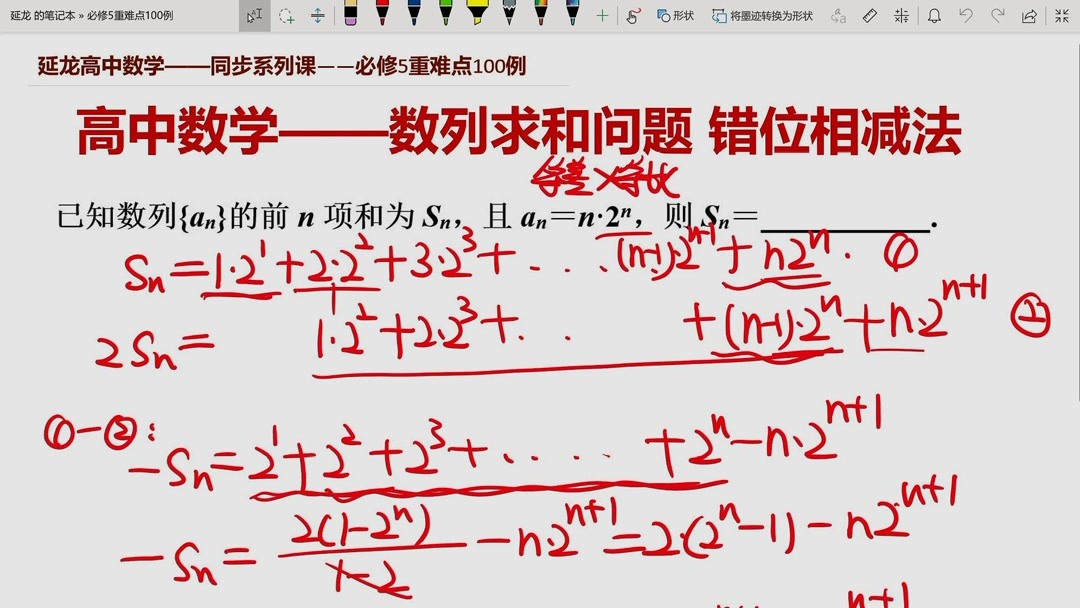 延龙 的笔记本 » 必修5重难点100例
形状 将墨迹转换为形状
延龙高中数学——同步系列课——必修5重难点100例
高中数学——数列求和问题 错位相减法
等差×等比
已知数列{aₙ}的前 n 项和为 Sₙ，且 aₙ=n·2ⁿ，则 Sₙ=____________.
Sₙ=1·2¹+2·2²+3·2³+....(n-1)·2ⁿ⁻¹+n2ⁿ. ①
2Sₙ= 1·2²+2·2³+... +(n-1)·2ⁿ+n·2ⁿ⁺¹ ②
①-②:
-Sₙ=2¹+2²+2³+..... +2ⁿ-n·2ⁿ⁺¹
-Sₙ= 2(1-2ⁿ)/(1-2) -n·2ⁿ⁺¹=2·(2ⁿ-1)-n2ⁿ⁺¹
n+1